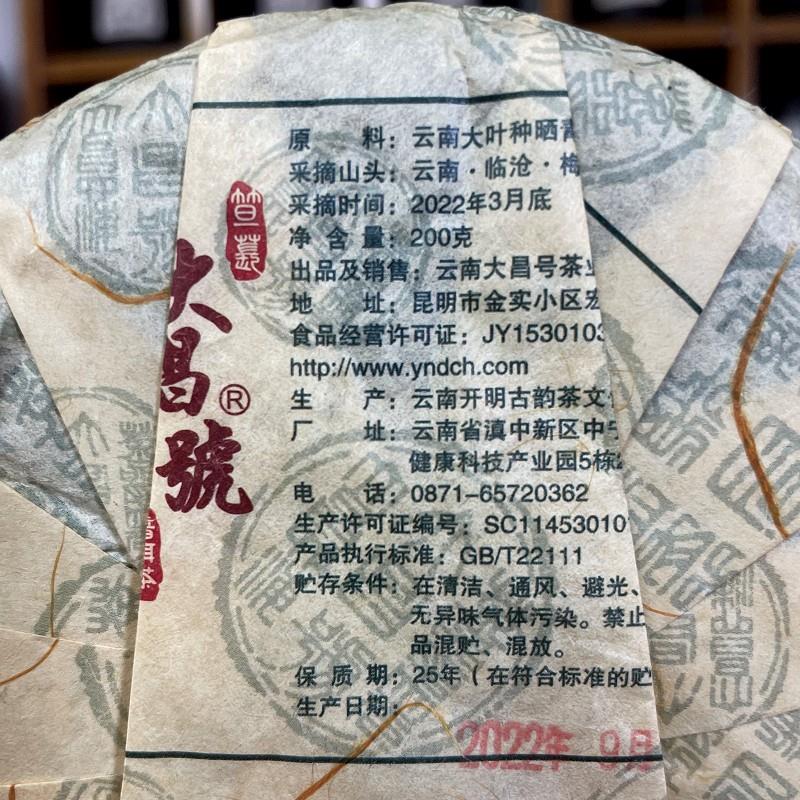 大昌號®
原　　料：云南大叶种晒青
采摘山头：云南·临沧·梅
采摘时间：2022年3月底
净 含 量：200克
出品及销售：云南大昌号茶业
地　　址：昆明市金实小区宏
食品经营许可证：JY1530103
http://www.yndch.com
生　　产：云南开明古韵茶文
厂　　址：云南省滇中新区中
健康科技产业园5栋
电　　话：0871-65720362
生产许可证编号：SC11453010
产品执行标准：GB/T22111
贮存条件：在清洁、通风、避光、
无异味气体污染。禁止
品混贮、混放。
保 质 期：25年（在符合标准的贮
生产日期：
2022年 9月